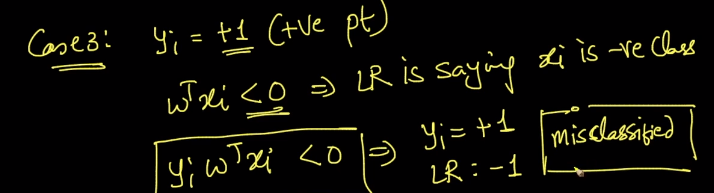 Case3: yᵢ = +1 (+ve pt)
wᵀxᵢ < 0 ⇒ LR is saying xᵢ is -ve class
yᵢ wᵀxᵢ < 0 ⇒ yᵢ = +1 misclassified
LR : -1